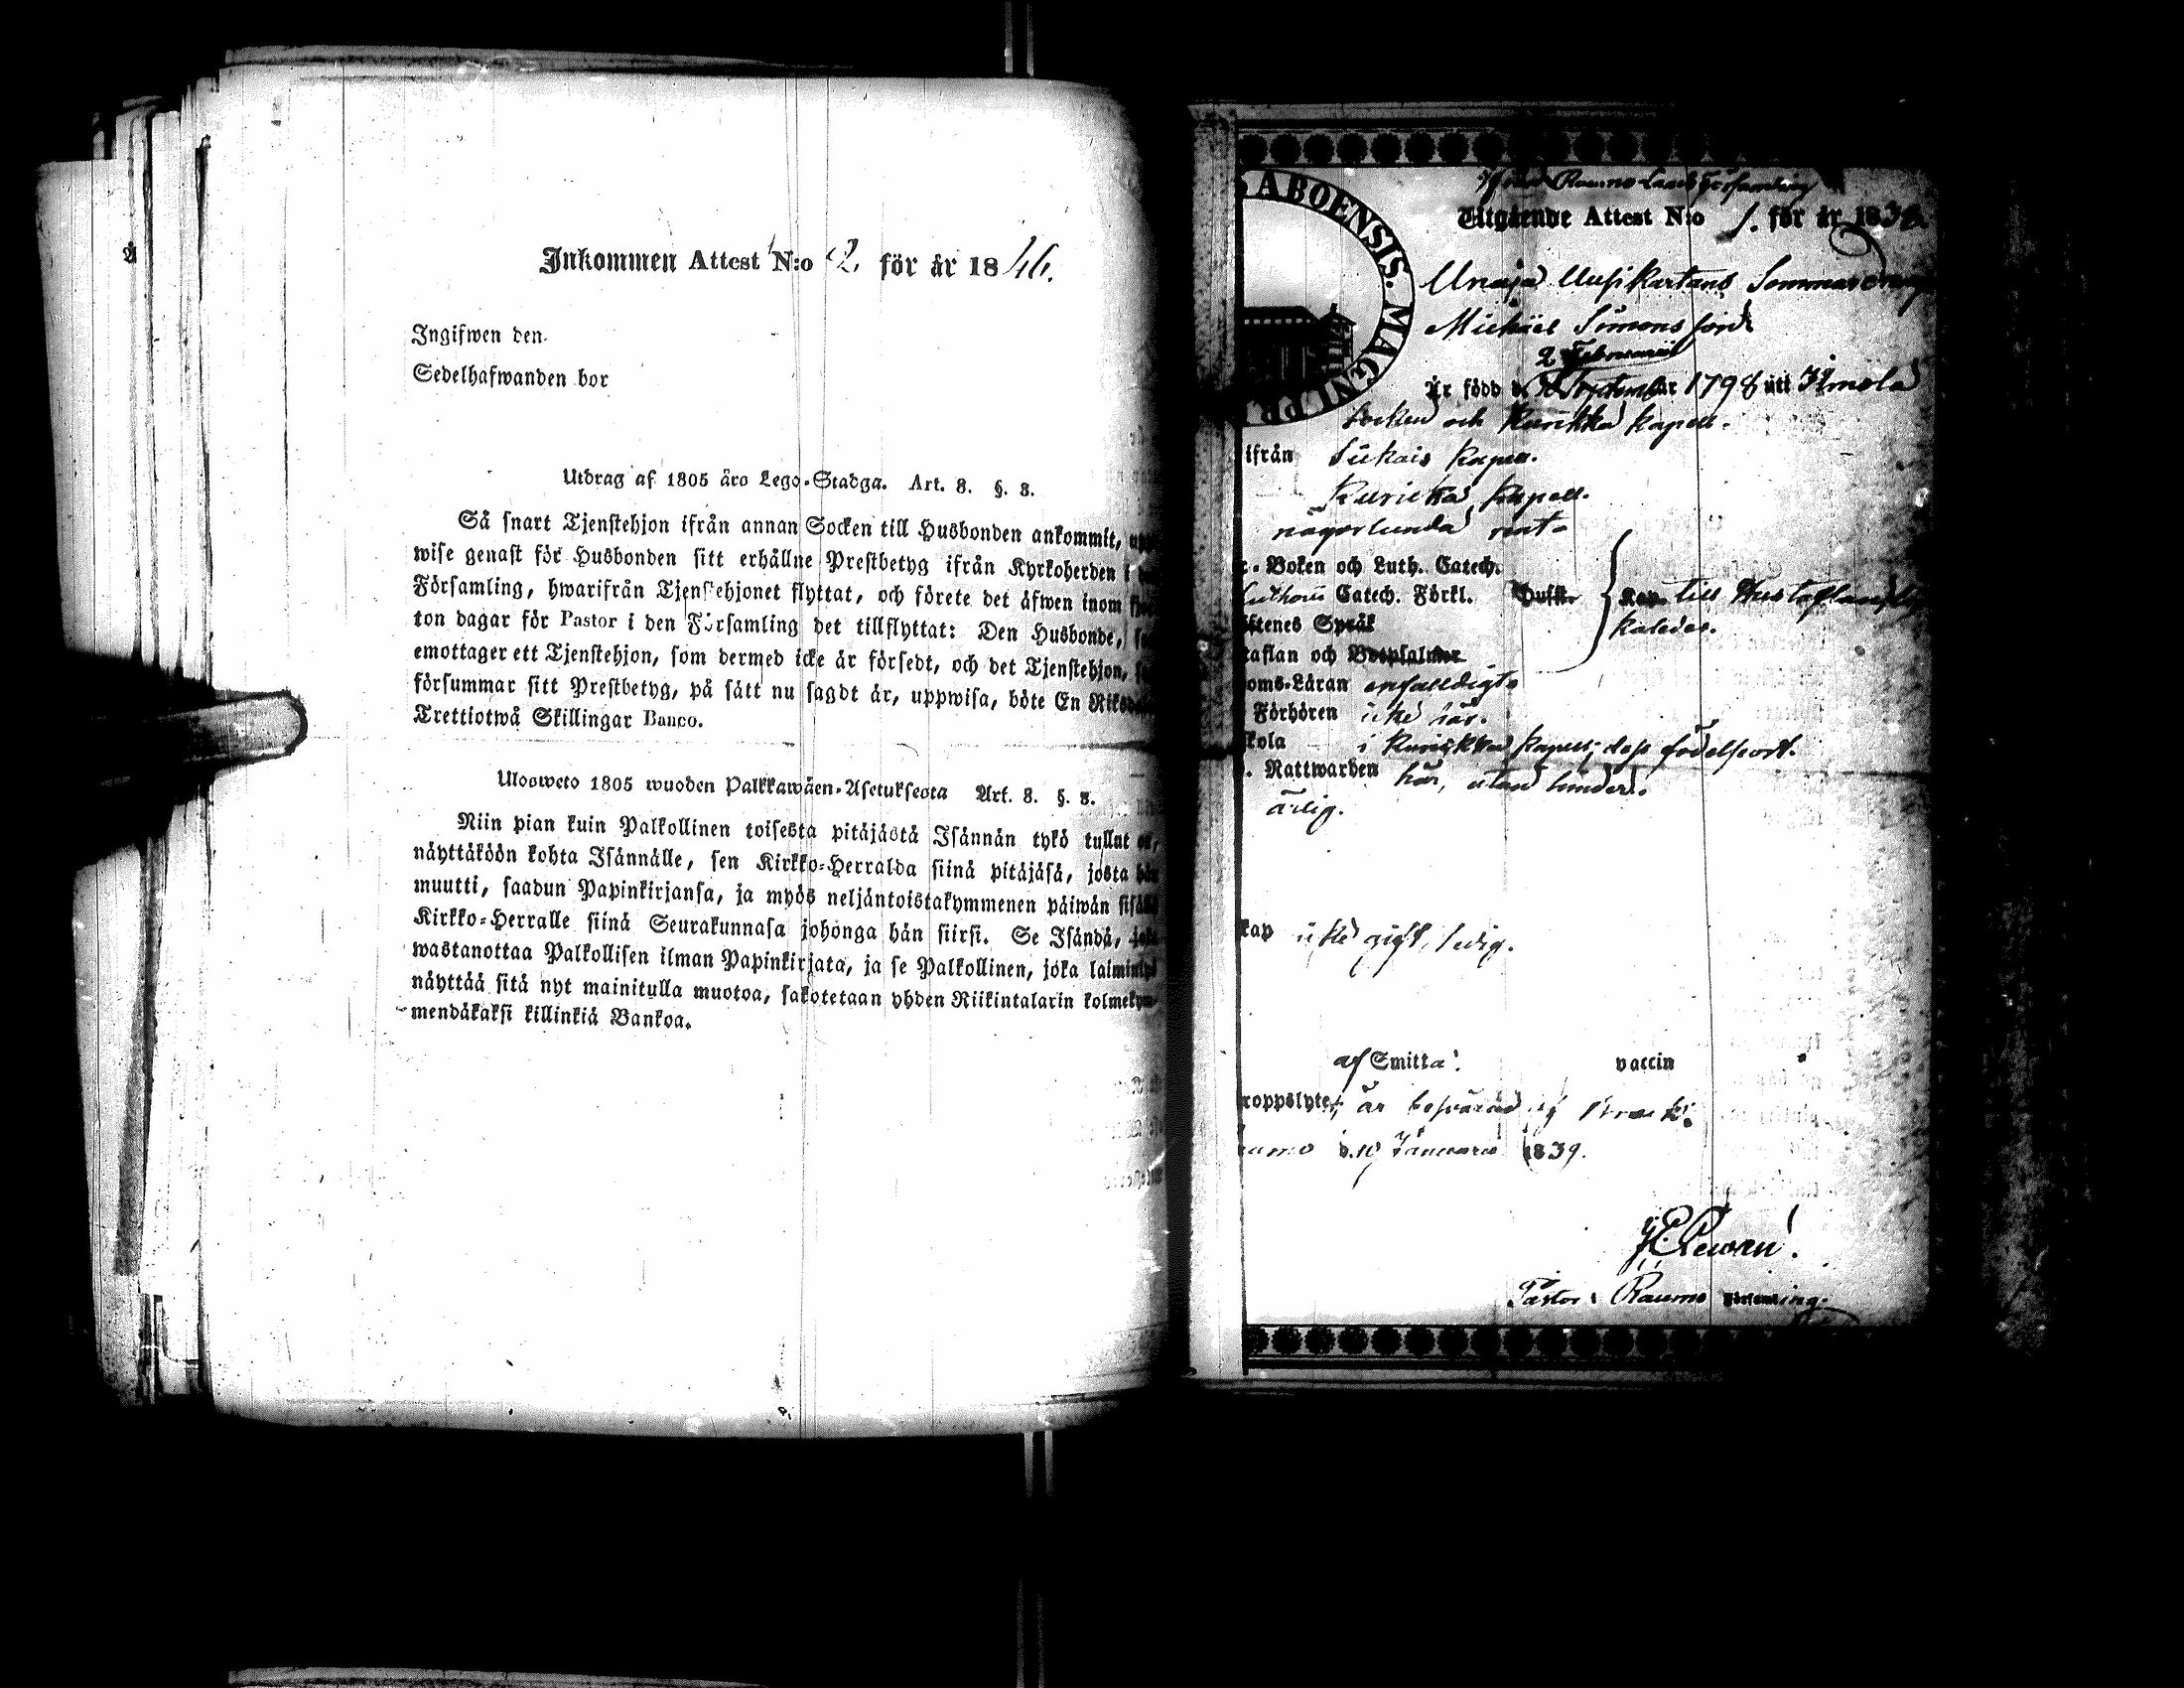 Inkommen Attest N:o 2. för år 1846.
Ingifwen den
Sedelhafwanden bor
Utdrag af 1805 års Lego-Stadga. Art. 8. §. 8.
Så snart Tjenstehjon ifrån annan Socken till Husbonden ankommit,
wise genast för Husbonden sitt erhållne Prestbetyg ifrån Kyrkoherden i
Församling, hwarifrån Tjenstehjonet flyttat, och förete det äfwen inom
ton dagar för Pastor i den Församling det tillflyttat: Den Husbonde,
emottager ett Tjenstehjon, som dermed icke är försedt, och det Tjenstehjon,
försummar sitt Prestbetyg, på sätt nu sagdt är, uppwisa, böte En
Trettiotwå Skillingar Banco.
Ulosweto 1805 wuoden Palkkawäen-Asetuksesta Art. 8. §. 8.
Niin pian kuin Palkollinen toisesta pitäjästä Isännän tykö tullut on,
näyttäköön kohta Isännälle, sen Kirkko-Herralda siinä pitäjäsä, josta hän
muutti, saadun Papinkirjansa, ja myös neljäntoistakymmenen päiwän sisällä
Kirkko-Herralle siinä Seurakunnasa johonga hän siirsi. Se Isändä, joka
wastanottaa Palkollisen ilman Papinkirjata, ja se Palkollinen, joka laiminlyö
näyttää sitä nyt mainitulla muotoa, sakotetaan yhden Riikintalarin kolmekym-
mendäkaksi killinkiä Bankoa.
ABOENSIS. MAGNI PR
ifrån Raumo Lands Församling
Utgående Attest N:o 1. för år 1839
Unaja Uusikartano
Michael Simonsson
2 Februarii
Är född 1798 uti Ilmola
Socken och Kurikka Kapell.
ifrån Siikais Kapell.
Kurikka Kapell.
någorlunda rent
Boken och Luth. Catech.
Catech. Förkl.
till
kallades.
Språk
taflan och Botpsalmer
oms-Läran enfalldigt
Förhören icke här.
skola i Kurikka Kapell, dess födelseort.
Nattwarden här, utan hinder.
ärlig.
skap icke gift, ledig.
af Smitta. vaccin
roppslyte, är beswärad af bråck.
aumo d. 10 Januarii 1839.
Pastor i Raumo Församling.